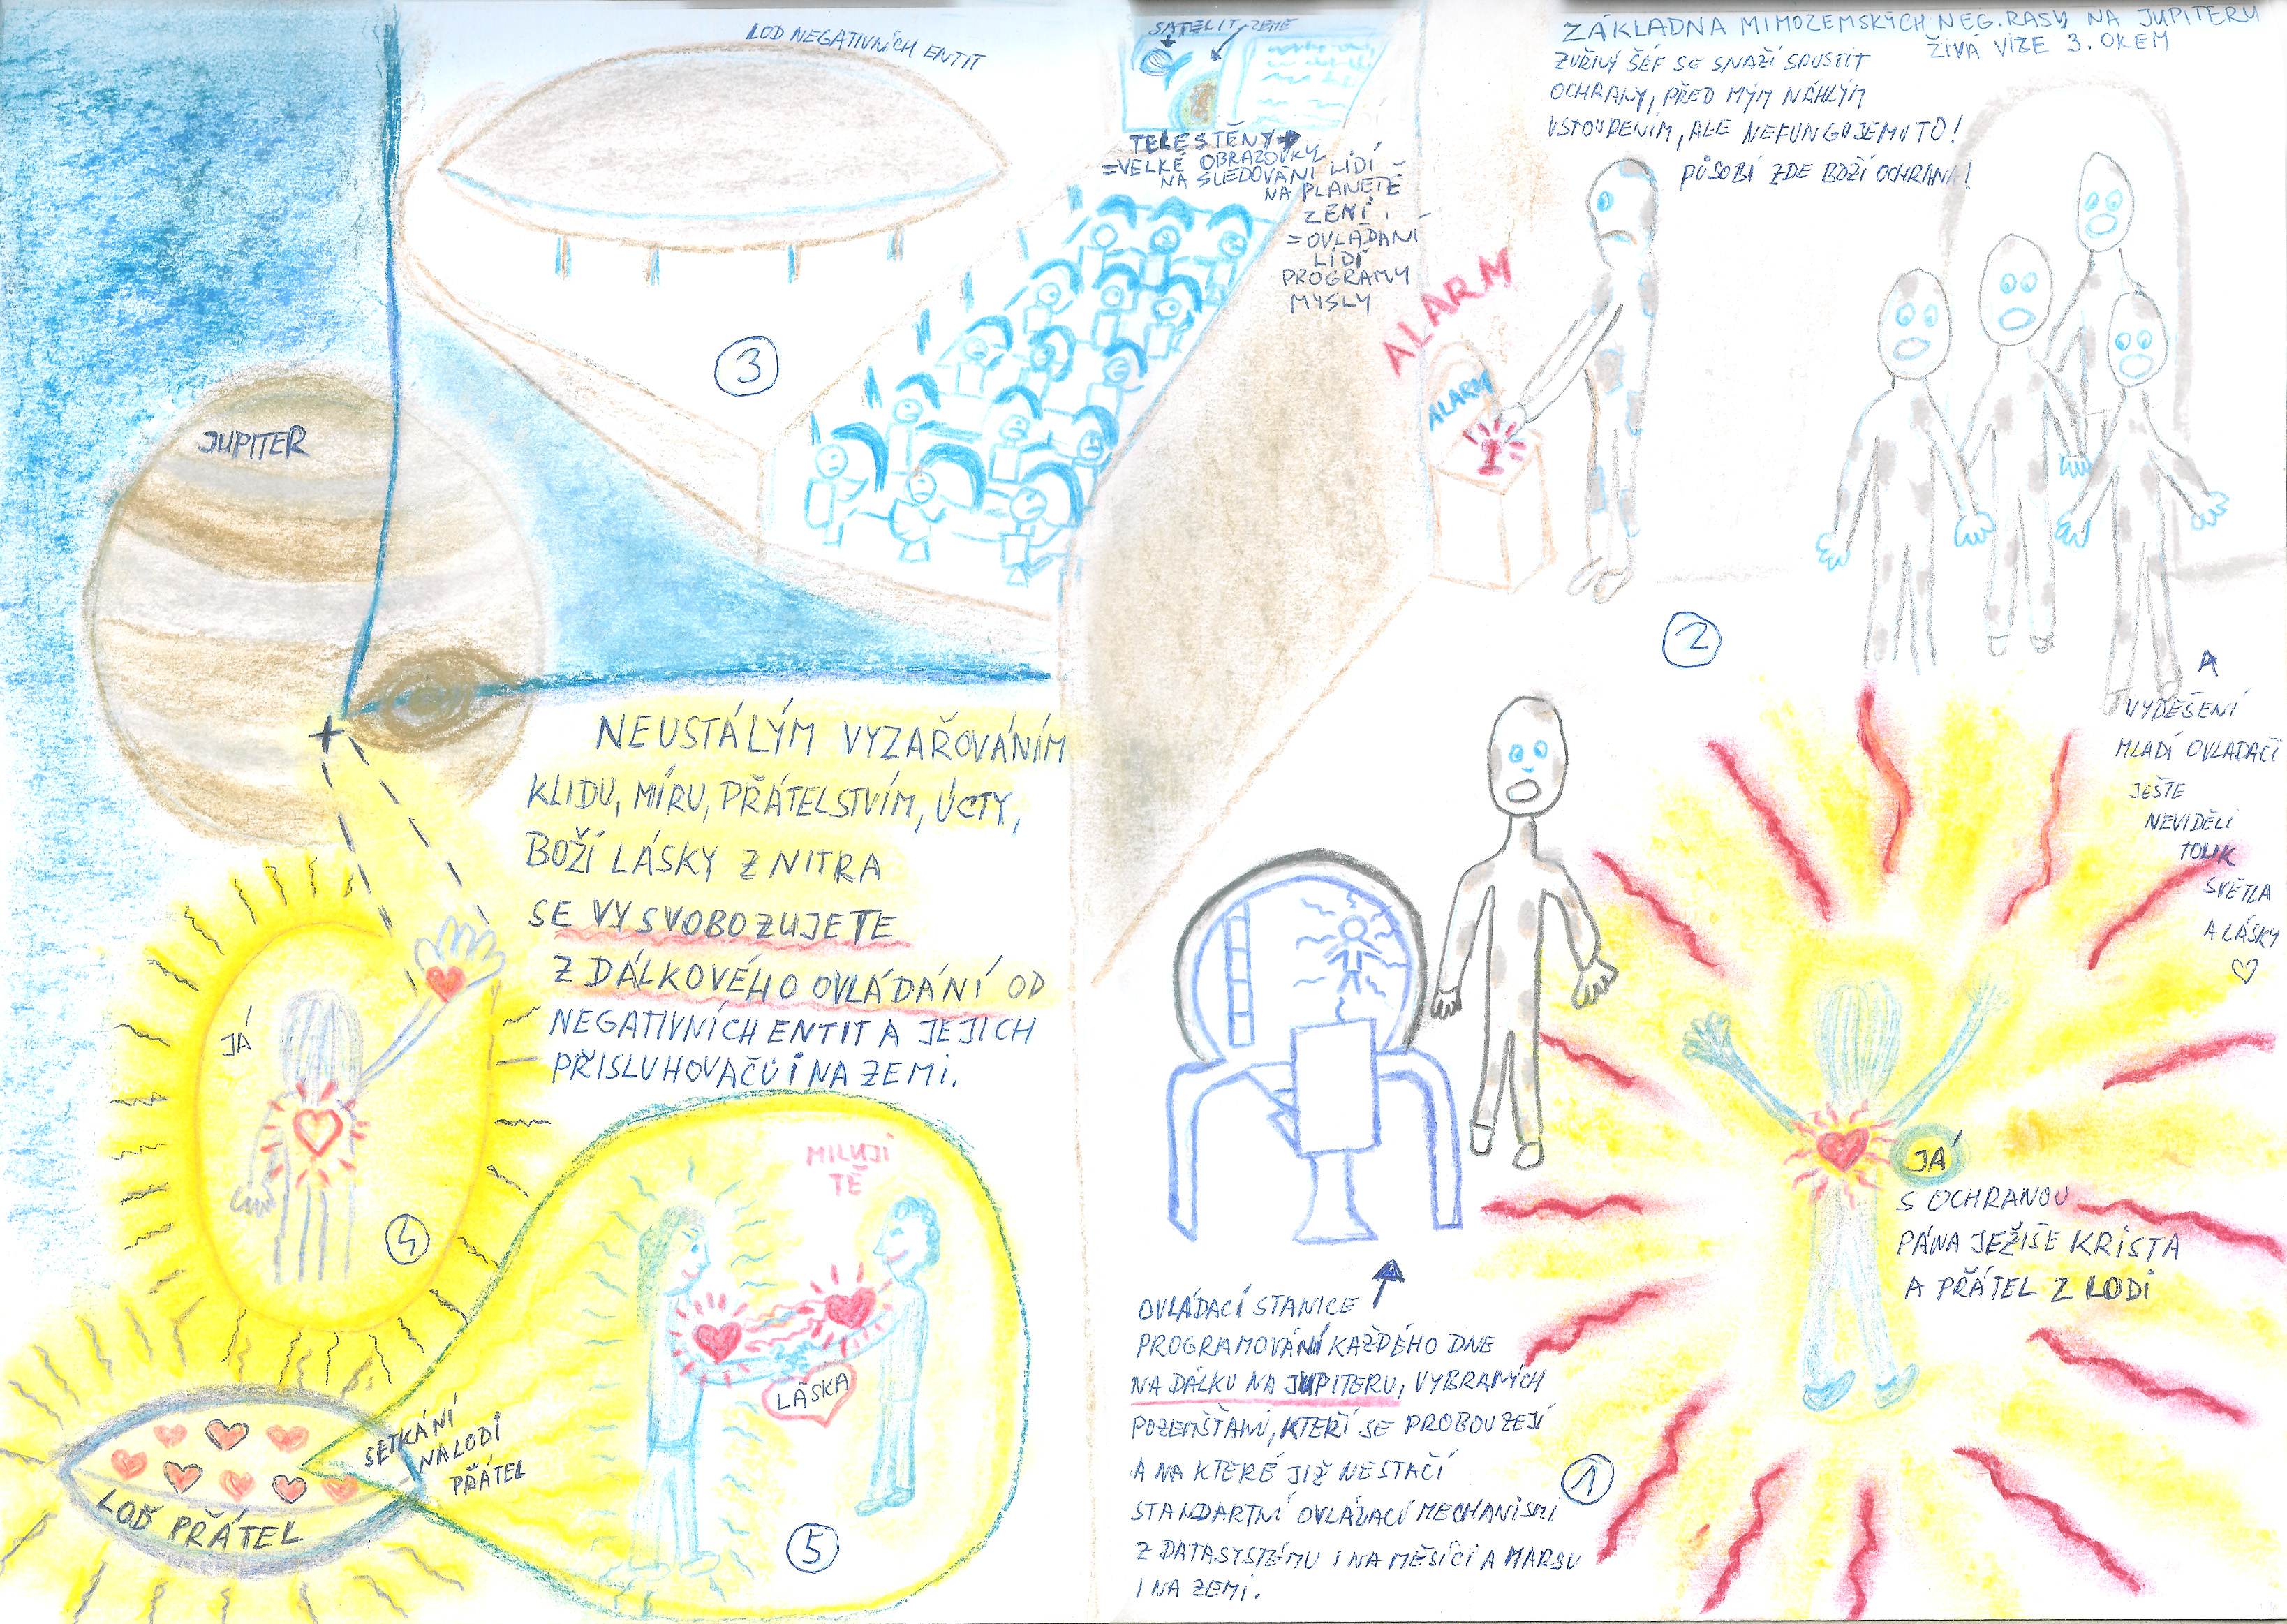 LOĎ NEGATIVNÍCH ENTIT
SATELIT ZEMĚ
TELESTĚNY
=VELKÉ OBRAZOVKY
NA SLEDOVÁNÍ LIDÍ
NA PLANETĚ
ZEMI
=OVLÁDANÍ
LIDÍ
PROGRAMY
MYSLY
ZÁKLADNA MIMOZEMSKÝCH NEG. RASY NA JUPITERU
ŽIVÁ VIZE 3. OKEM
ZUŘIVÝ ŠÉF SE SNAŽÍ SPUSTIT
OCHRANY, PŘED MÝM NÁHLÝM
VSTOUPENÍM, ALE NEFUNGUJE MU TO!
PŮSOBÍ ZDE BOŽÍ OCHRANA!
ALARM
ALARM
3
JUPITER
2
A
VYDĚŠENÍ
MLADÍ OVLADAČI
JEŠTE
NEVIDĚLI
TOLIK
SVĚTLA
A LÁSKY
NEUSTÁLÝM VYZAŘOVÁNÍM
KLIDU, MÍRU, PŘÁTELSTVÍM, ÚCTY,
BOŽÍ LÁSKY Z NITRA
SE VYSVOBOZUJETE
Z DÁLKOVÉHO OVLÁDÁNÍ OD
NEGATIVNÍCH ENTIT A JEJICH
PŘISLUHOVAČŮ I NA ZEMI.
JÁ
4
MILUJI
TĚ
LÁSKA
SETKÁNÍ
NA LODI
PŘÁTEL
LOĎ PŘÁTEL
5
JÁ
S OCHRANOU
PÁNA JEŽÍŠE KRISTA
A PŘÁTEL Z LODI
OVLÁDACÍ STANICE
PROGRAMOVÁNÍ KAŽDÉHO DNE
NA DÁLKU NA JUPITERU, VYBRANÝCH
POZEMŠŤANŮ, KTEŘÍ SE PROBOUZEJÍ
A NA KTERÉ JIŽ NESTAČÍ
STANDARTNÍ OVLÁDACÍ MECHANISMI
Z DATASYSTÉMU I NA MĚSÍCI A MARSU
I NA ZEMI.
1